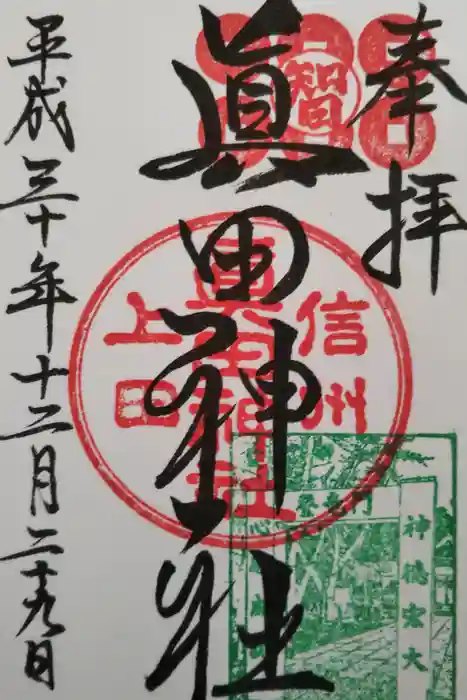 奉拝
智
眞田神社
信州
眞田神社
上田
神徳宏大
平成三十年十二月二十九日